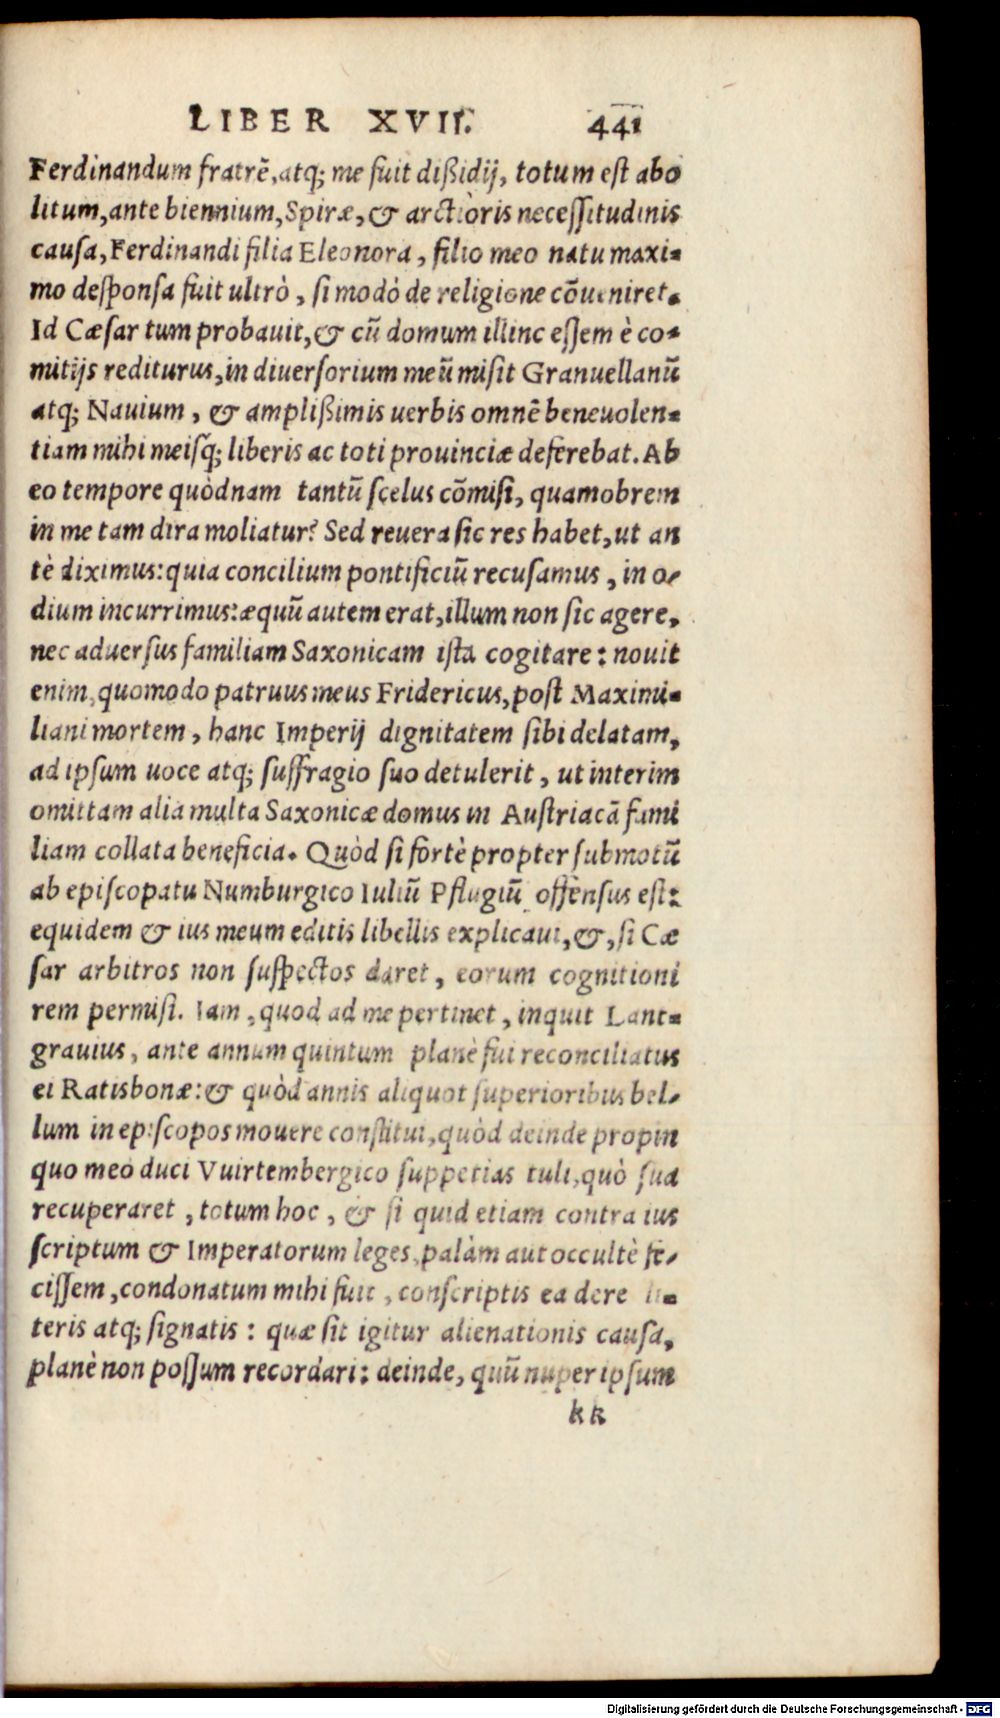 LIBER XVII. 441
Ferdinandum fratrē, atq; me fuit dißidij, totum est abo
litum, ante biennium, Spiræ, & arctioris necessitudinis
causa, Ferdinandi filia Eleonora, filio meo natu maxi-
mo desponsa fuit ultrò, si modò de religione cōueniret.
Id Cæsar tum probauit, & cū domum illinc essem è co-
mitijs rediturus, in diuersorium meū misit Granuellanū
atq; Nauium, & amplißimis uerbis omnē beneuolen-
tiam mihi meisq; liberis ac toti prouinciæ deferebat. Ab
eo tempore quòdnam tantū scelus cōmisi, quamobrem
in me tam dira moliatur? Sed reuera sic res habet, ut an
tè diximus: quia concilium pontificiū recusamus, in o-
dium incurrimus: æquū autem erat, illum non sic agere,
nec aduersus familiam Saxonicam ista cogitare: nouit
enim, quomodo patruus meus Fridericus, post Maximi-
liani mortem, hanc Imperij dignitatem sibi delatam,
ad ipsum uoce atq; suffragio suo detulerit, ut interim
omittam alia multa Saxonicæ domus in Austriacā fami
liam collata beneficia. Quòd si fortè propter submotū
ab episcopatu Numburgico Iuliū Pflugiū offensus est:
equidem & ius meum editis libellis explicaui, &, si Cæ
sar arbitros non suspectos daret, eorum cognitioni
rem permisi. Iam, quod ad me pertinet, inquit Lant-
grauius, ante annum quintum planè fui reconciliatus
ei Ratisbonæ: & quòd annis aliquot superioribus bel-
lum in episcopos mouere constitui, quòd deinde propin
quo meo duci Vuirtembergico suppetias tuli, quò sua
recuperaret, totum hoc, & si quid etiam contra ius
scriptum & Imperatorum leges, palàm aut occultè fe-
cissem, condonatum mihi fuit, conscriptis ea de re li-
teris atq; signatis: quæ sit igitur alienationis causa,
planè non possum recordari: deinde, quū nuper ipsum
kk
Digitalisierung gefördert durch die Deutsche Forschungsgemeinschaft - DFG